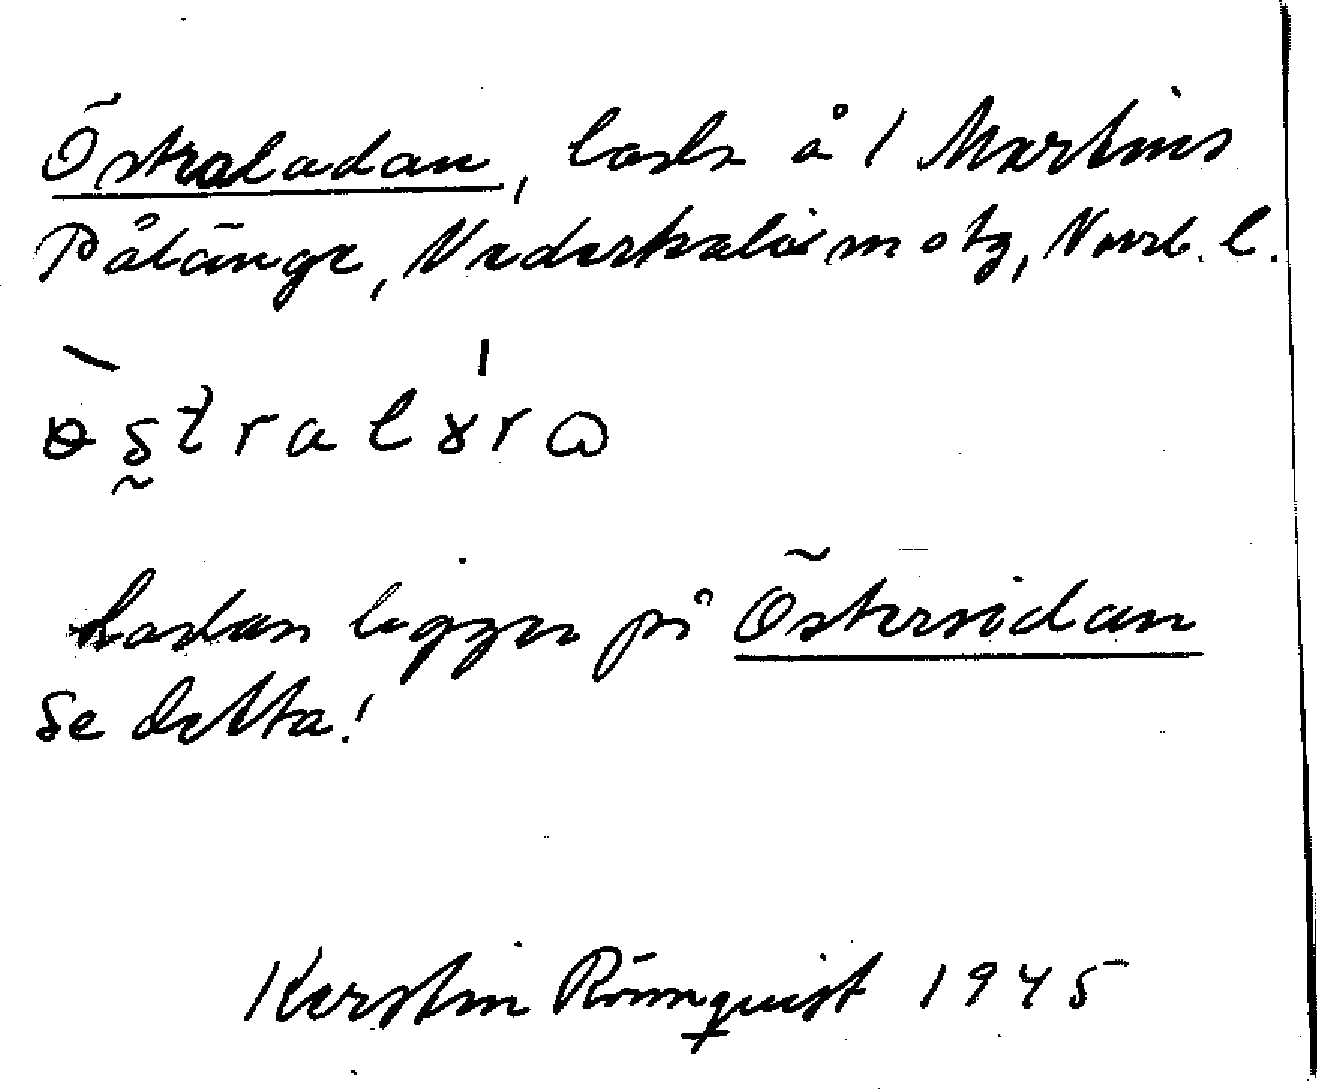 Östraladan, lada å 1 Martins
Pålänge, Nederkalix m o tg, Norrb. l.
Ladan ligger på Östersidan
Se detta!
Kerstin Rönnquist 1945